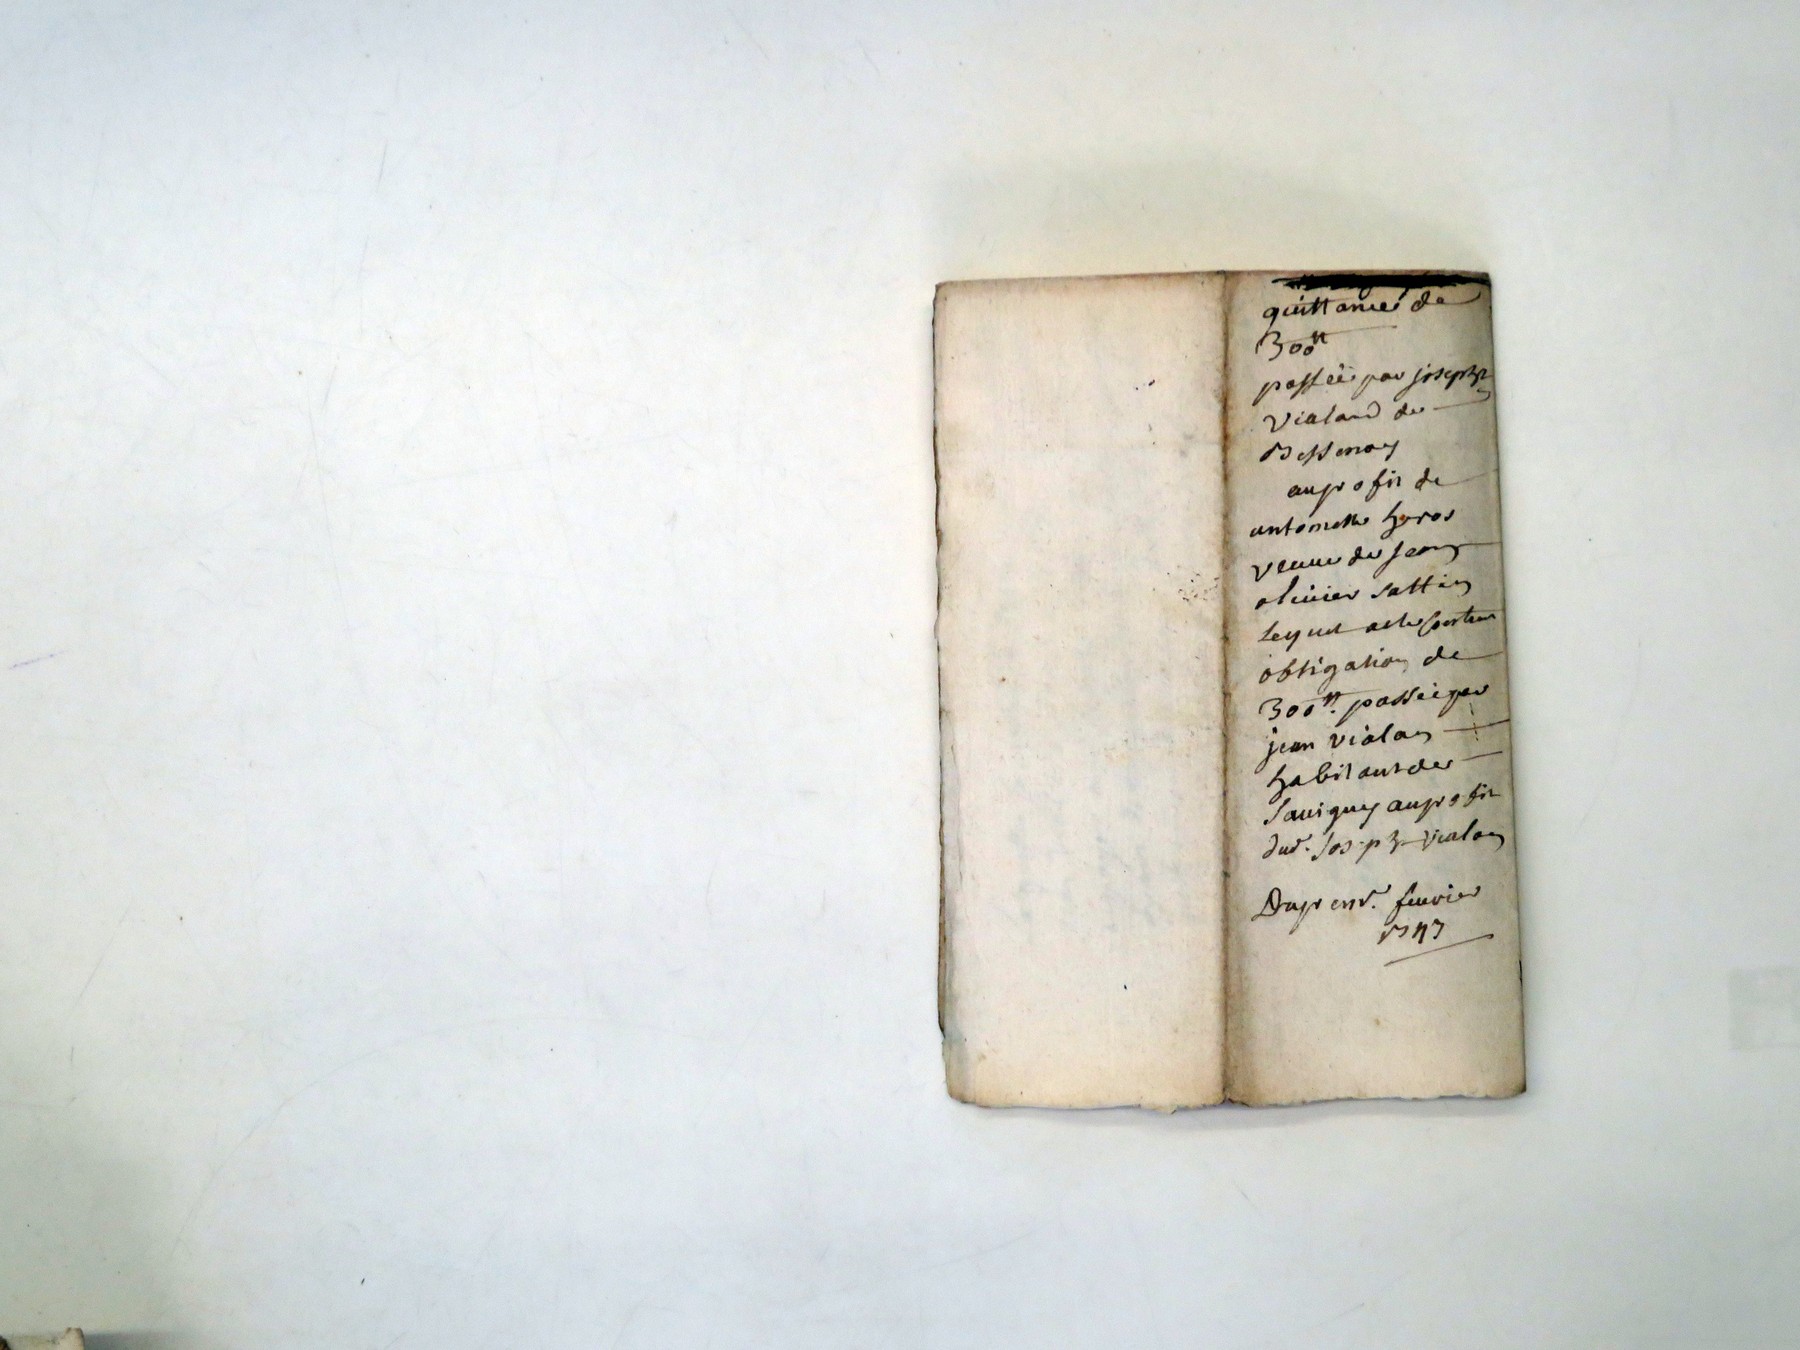 quittance de
300ᵗᵗ
passée par joseph
Vialand de
Bessenay
au profit de
antoinette heros
veuve de Jean
olivier Sattin
lequel acte porteur
obligation de
300ᵗᵗ. passée par
jean vialan
habitant de
Savigny au profit
dud. Joseph vialan
Du pr env. fevrier
1747